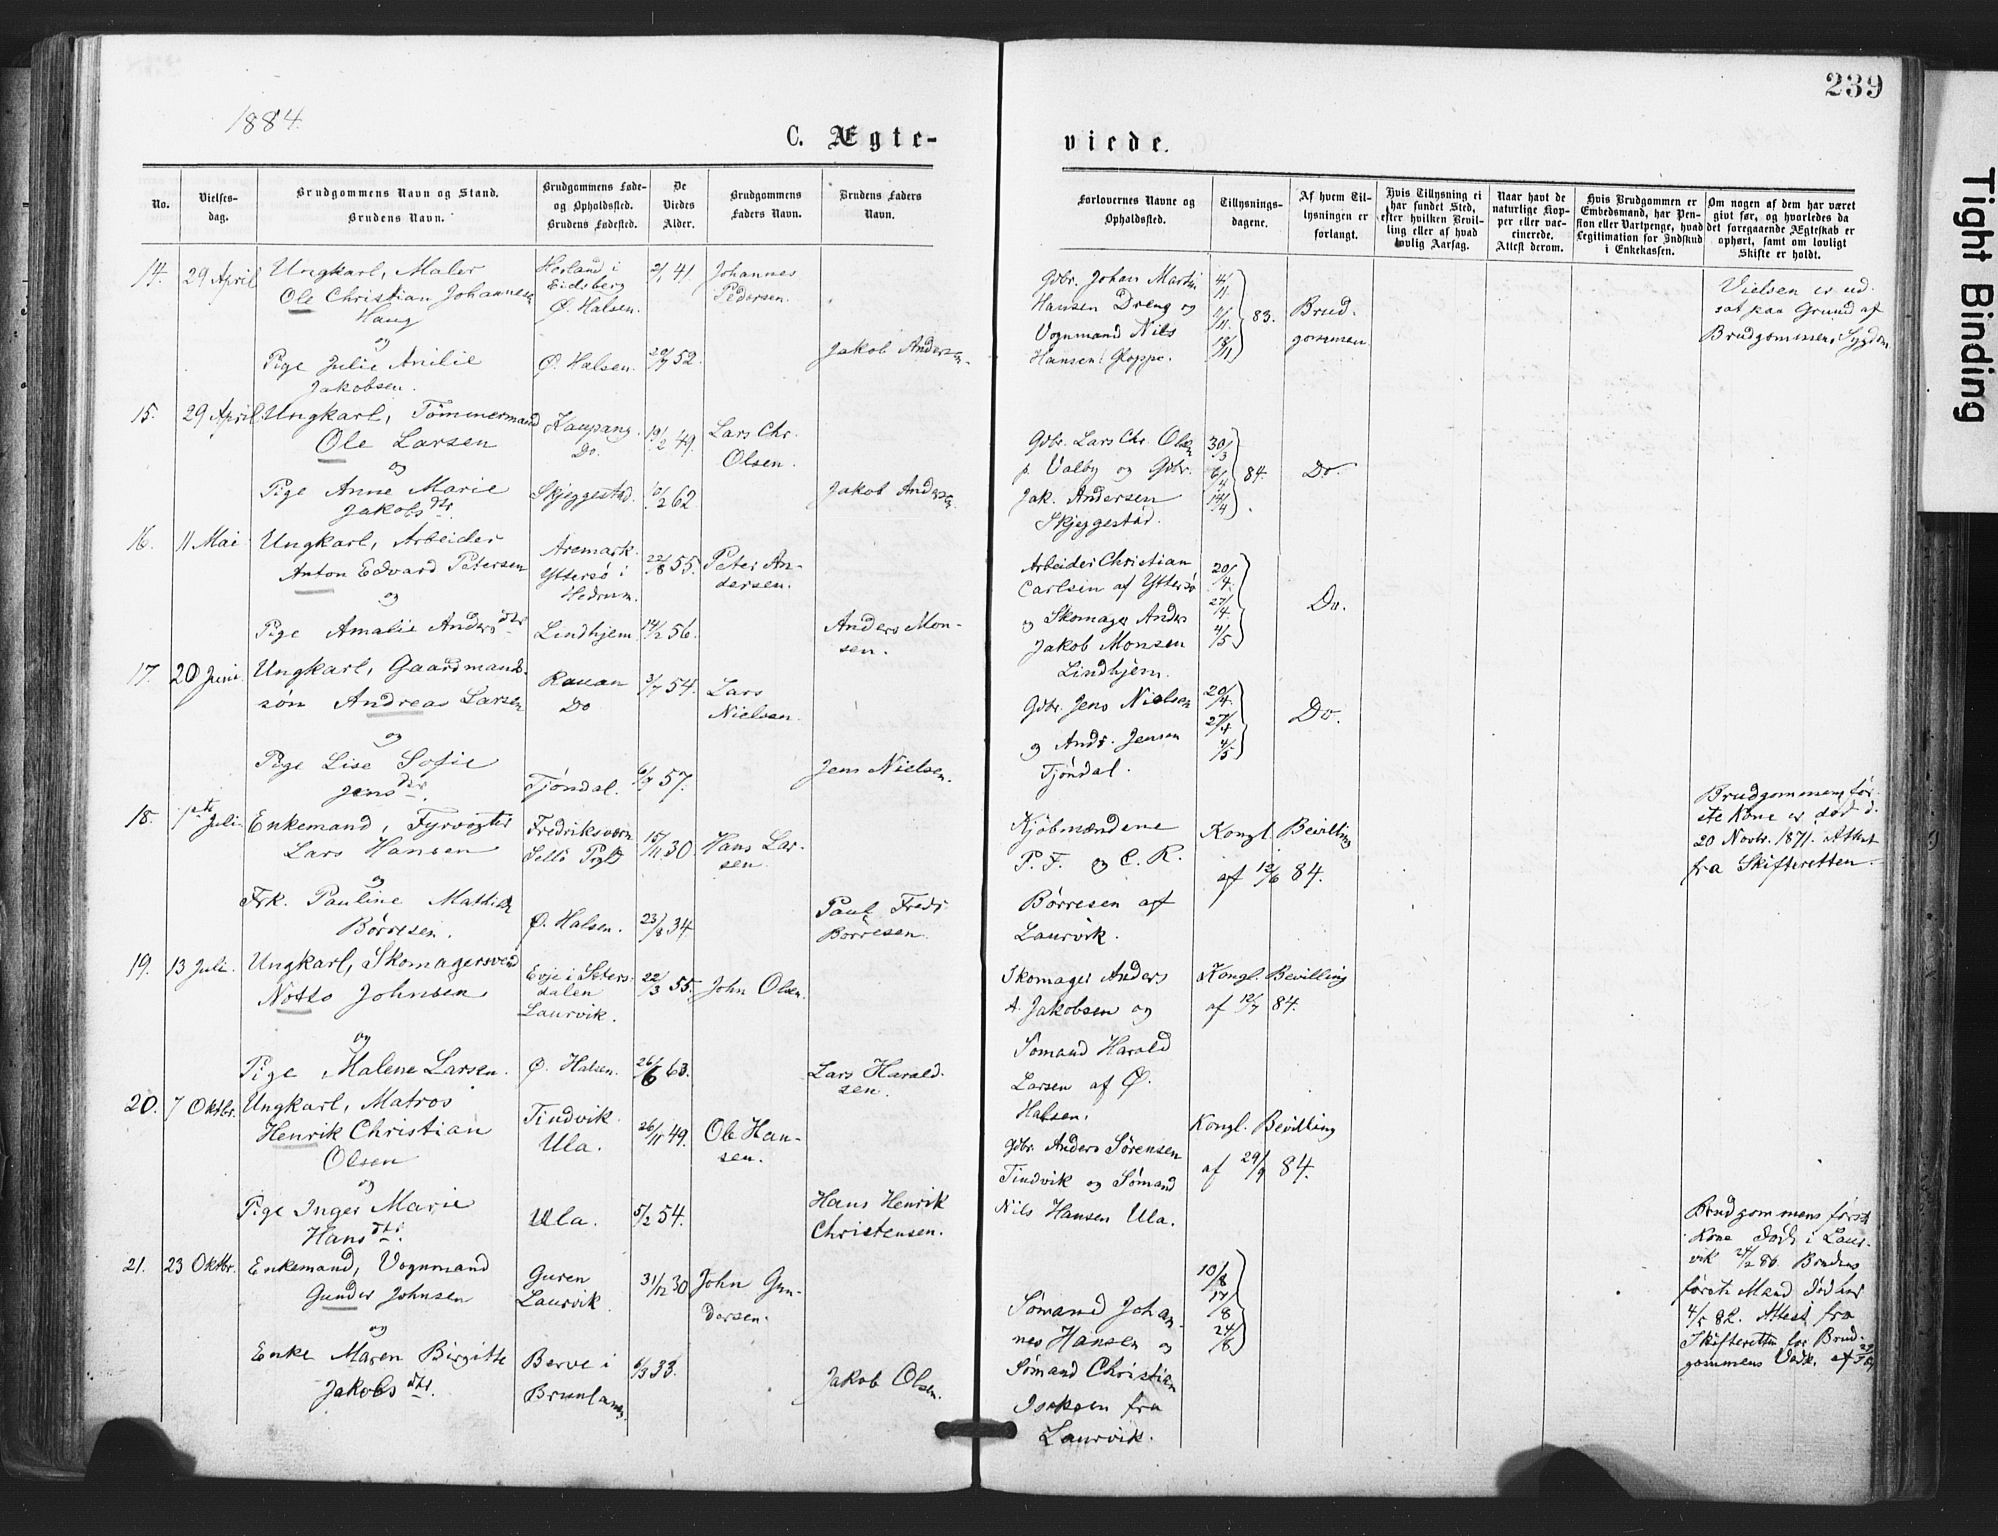 239
Tight Binding
1884.
C. Ægte-
viede.
No.
Vielses-
dag.
Brudgommens Navn og Stand.
Brudens Navn.
Brudgommens Føde-
og Opholdssted.
Brudens Fødested.
De
Viedes
Alder.
Brudgommens
Faders Navn.
Brudens Faders
Navn.
Forlovernes Navne og
Opholdssted.
Tillysnings-
dagene.
Af hvem Til-
lysningen er
forlangt.
Hvis Tillysning ei
har fundet Sted,
efter hvilken Bevil-
ling eller af hvad
lovlig Aarsag.
Naar havt de
naturlige Kop-
per eller vac-
cinerede.
Attest derom.
Hvis Brudgommen er
Embedsmand, har Pen-
sion eller Vartpenge, hvad
Legitimation for Indskud
i Enkekassen.
Om nogen af dem har været
givt før, og hvorledes da
det foregaaende Ægteskab er
ophørt, samt om lovligt
Skifte er holdt.
14. 29 April
Ungkarl, Maler
Ole Christian Johannesen
Haug
og
Pige Julie Anilie
Jakobsen.
Herland i
Eidsberg
Ø. Halsen.
Ø. Halsen.
2/1 41
20/7 52.
Johannes
Pedersen.
Jakob Andersen.
Gdbr. Johan Martin
Hansen Dreng og
Vognmand Nils
Hansen Gloppe.
4/11
11/11
18/11
83.
Brud-
gommen
Vielsen er ud-
sat paa Grund af
Brudgommens Sygdom
15. 29 April.
Ungkarl, Tömmermand
Ole Larsen
og
Pige Anne Marie
Jakobsdtr.
Kaupang.
Do.
Skjeggestad.
19/2 49.
10/2 62
Lars Chr.
Olsen.
Jakob Andersen.
Gdbr. Lars Chr. Olsen
p. Valby og Gdbr.
Jak. Andersen
Skjeggestad.
30/3
6/4
14/4
84.
Do
16. 11 Mai
Ungkarl, Arbeider
Anton Edvard Petersen
og
Pige Amalie Andersdtr
Aremark.
Yttersø i
Hedrum.
Lindhjem
22/8 55.
14/2 56.
Peter An-
dersen.
Anders Mon-
sen.
Arbeider Christian
Carlsen af Yttersö
og Skomager Anders
Jakob Monsen
Lindhjem.
20/4.
27/4
4/5
Do.
17. 20 Juni.
Ungkarl, Gaardmands-
sön Andreas Larsen
og
Pige Lise Sofie
Jensdtr.
Rauan
Do
Tjöndal.
3/7 54.
6/9 57.
Lars
Nielsen.
Jens Nielsen.
Gdbr. Jens Nielsen
og Andr. Jensen
Tjöndal.
20/4.
27/4
4/5
Do.
18. 1ste Juli
Enkemand, Fyrvogter
Lars Hansen
og
Frk. Pauline Mathilde
Börresen.
Fredriksværn
Ø. Halsen.
15/11 30
23/8 34
Hans Lar-
sen.
Paul Fredr
Börresen
Kjöbmændene
P. F. og C. R.
Börresen af
Laurvik.
Kongl. Bevilling
af 12/6 84.
Brudgommens för-
ste Kone er död d.
20 Novbr. 1871. Attest
fra Skifteretten.
19. 13 Juli.
Ungkarl, Skomagersvend
Notto Johnsen
og
Pige Malene Larsen.
Evje i Sæters-
dalen
Laurvik.
Ø. Halsen.
22/3 55.
26/6 63.
John Olsen.
Lars Harald-
sen.
Skomager Anders
A. Jakobsen og
Sömand Harald
Larsen af Ø.
Halsen.
Kongl. Bevilling
af 12/7 84.
20. 7 Oktbr.
Ungkarl, Matros
Henrik Christian
Olsen
og
Pige Inger Marie
Hansdtr.
Tindvik.
Ula.
Ula.
26/11 49.
5/2 54.
Ole Han-
sen.
Hans Henrik
Christensen.
Gdbr. Anders Sörensen
Tindvik og Sömand
Nils Hansen Ula.
Kongl. Bevilling
af 29/9 84.
21. 23 Oktbr.
Enkemand, Vognmand
Gunder Johnsen
og
Enke Maren Birgitte
Jakobsdtr.
Guren
Laurvik.
Berve i
Brunlanes
31/12 30
6/3 33.
John Gun-
dersen.
Jakob Olsen.
Sömand Johan-
nes Hansen og
Sömand Christian
Isaksen fra
Laurvik.
10/8
17/8
24/8
Brudgommens förste
Kone död i Laur-
vik 24/2 80. Brudens
förste Mand död her
4/5 82. Attest fra
Skifteretten for Brud-
gommens Vedk. af